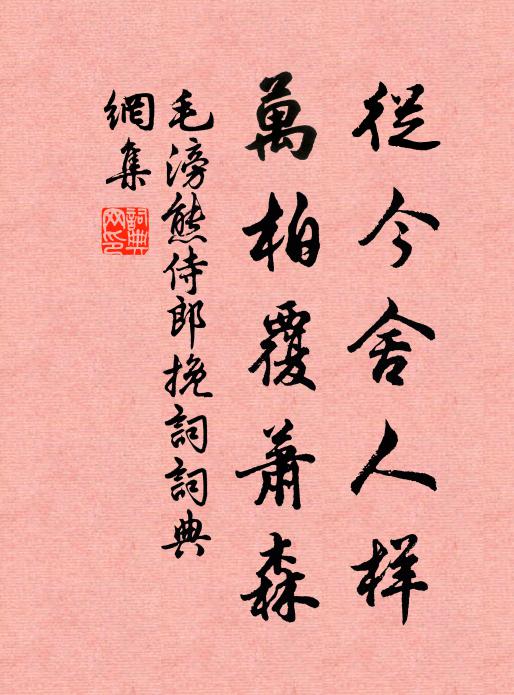 從今舍人样
萬柏覆蕭森
毛滂熊侍郎挽詞詞典
網集
詞典网印